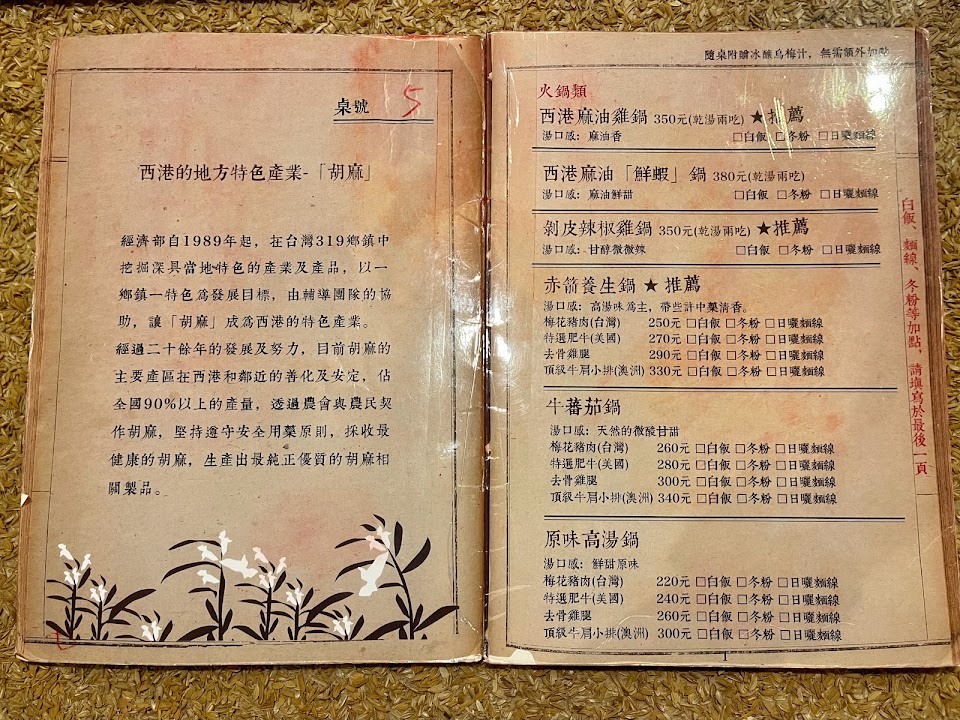 桌號 5
西港的地方特色產業-「胡麻」
經濟部自1989年起，在台灣319鄉鎮中
挖掘深具當地特色的產業及產品，以一
鄉鎮一特色為發展目標，由輔導團隊的協
助，讓「胡麻」成為西港的特色產業。
經過二十餘年的發展及努力，目前胡麻的
主要產區在西港和鄰近的善化及安定，佔
全國90%以上的產量，透過農會與農民契
作胡麻，堅持遵守安全用藥原則，採收最
健康的胡麻，生產出最純正優質的胡麻相
關製品。
隨桌附贈冰釀烏梅汁，無需額外加點
火鍋類
西港麻油雞鍋 350元(乾湯兩吃) ★推薦
湯口感：麻油香 □白飯 □冬粉 □日曬麵線
西港麻油「鮮蝦」鍋 380元(乾湯兩吃)
湯口感：麻油鮮甜 □白飯 □冬粉 □日曬麵線
剝皮辣椒雞鍋 350元(乾湯兩吃) ★推薦
湯口感：甘醇微微辣 □白飯 □冬粉 □日曬麵線
赤箭養生鍋 ★ 推薦
湯口感：高湯味為主，帶些許中藥清香。
梅花豬肉(台灣) 250元 □白飯 □冬粉 □日曬麵線
特選肥牛(美國) 270元 □白飯 □冬粉 □日曬麵線
去骨雞腿 290元 □白飯 □冬粉 □日曬麵線
頂級牛肩小排(澳洲) 330元 □白飯 □冬粉 □日曬麵線
牛蕃茄鍋
湯口感：天然的微酸甘甜
梅花豬肉(台灣) 260元 □白飯 □冬粉 □日曬麵線
特選肥牛(美國) 280元 □白飯 □冬粉 □日曬麵線
去骨雞腿 300元 □白飯 □冬粉 □日曬麵線
頂級牛肩小排(澳洲) 340元 □白飯 □冬粉 □日曬麵線
原味高湯鍋
湯口感：鮮甜原味
梅花豬肉(台灣) 220元 □白飯 □冬粉 □日曬麵線
特選肥牛(美國) 240元 □白飯 □冬粉 □日曬麵線
去骨雞腿 260元 □白飯 □冬粉 □日曬麵線
頂級牛肩小排(澳洲) 300元 □白飯 □冬粉 □日曬麵線
白飯、麵線、冬粉等加點，請填寫於最後一頁
1